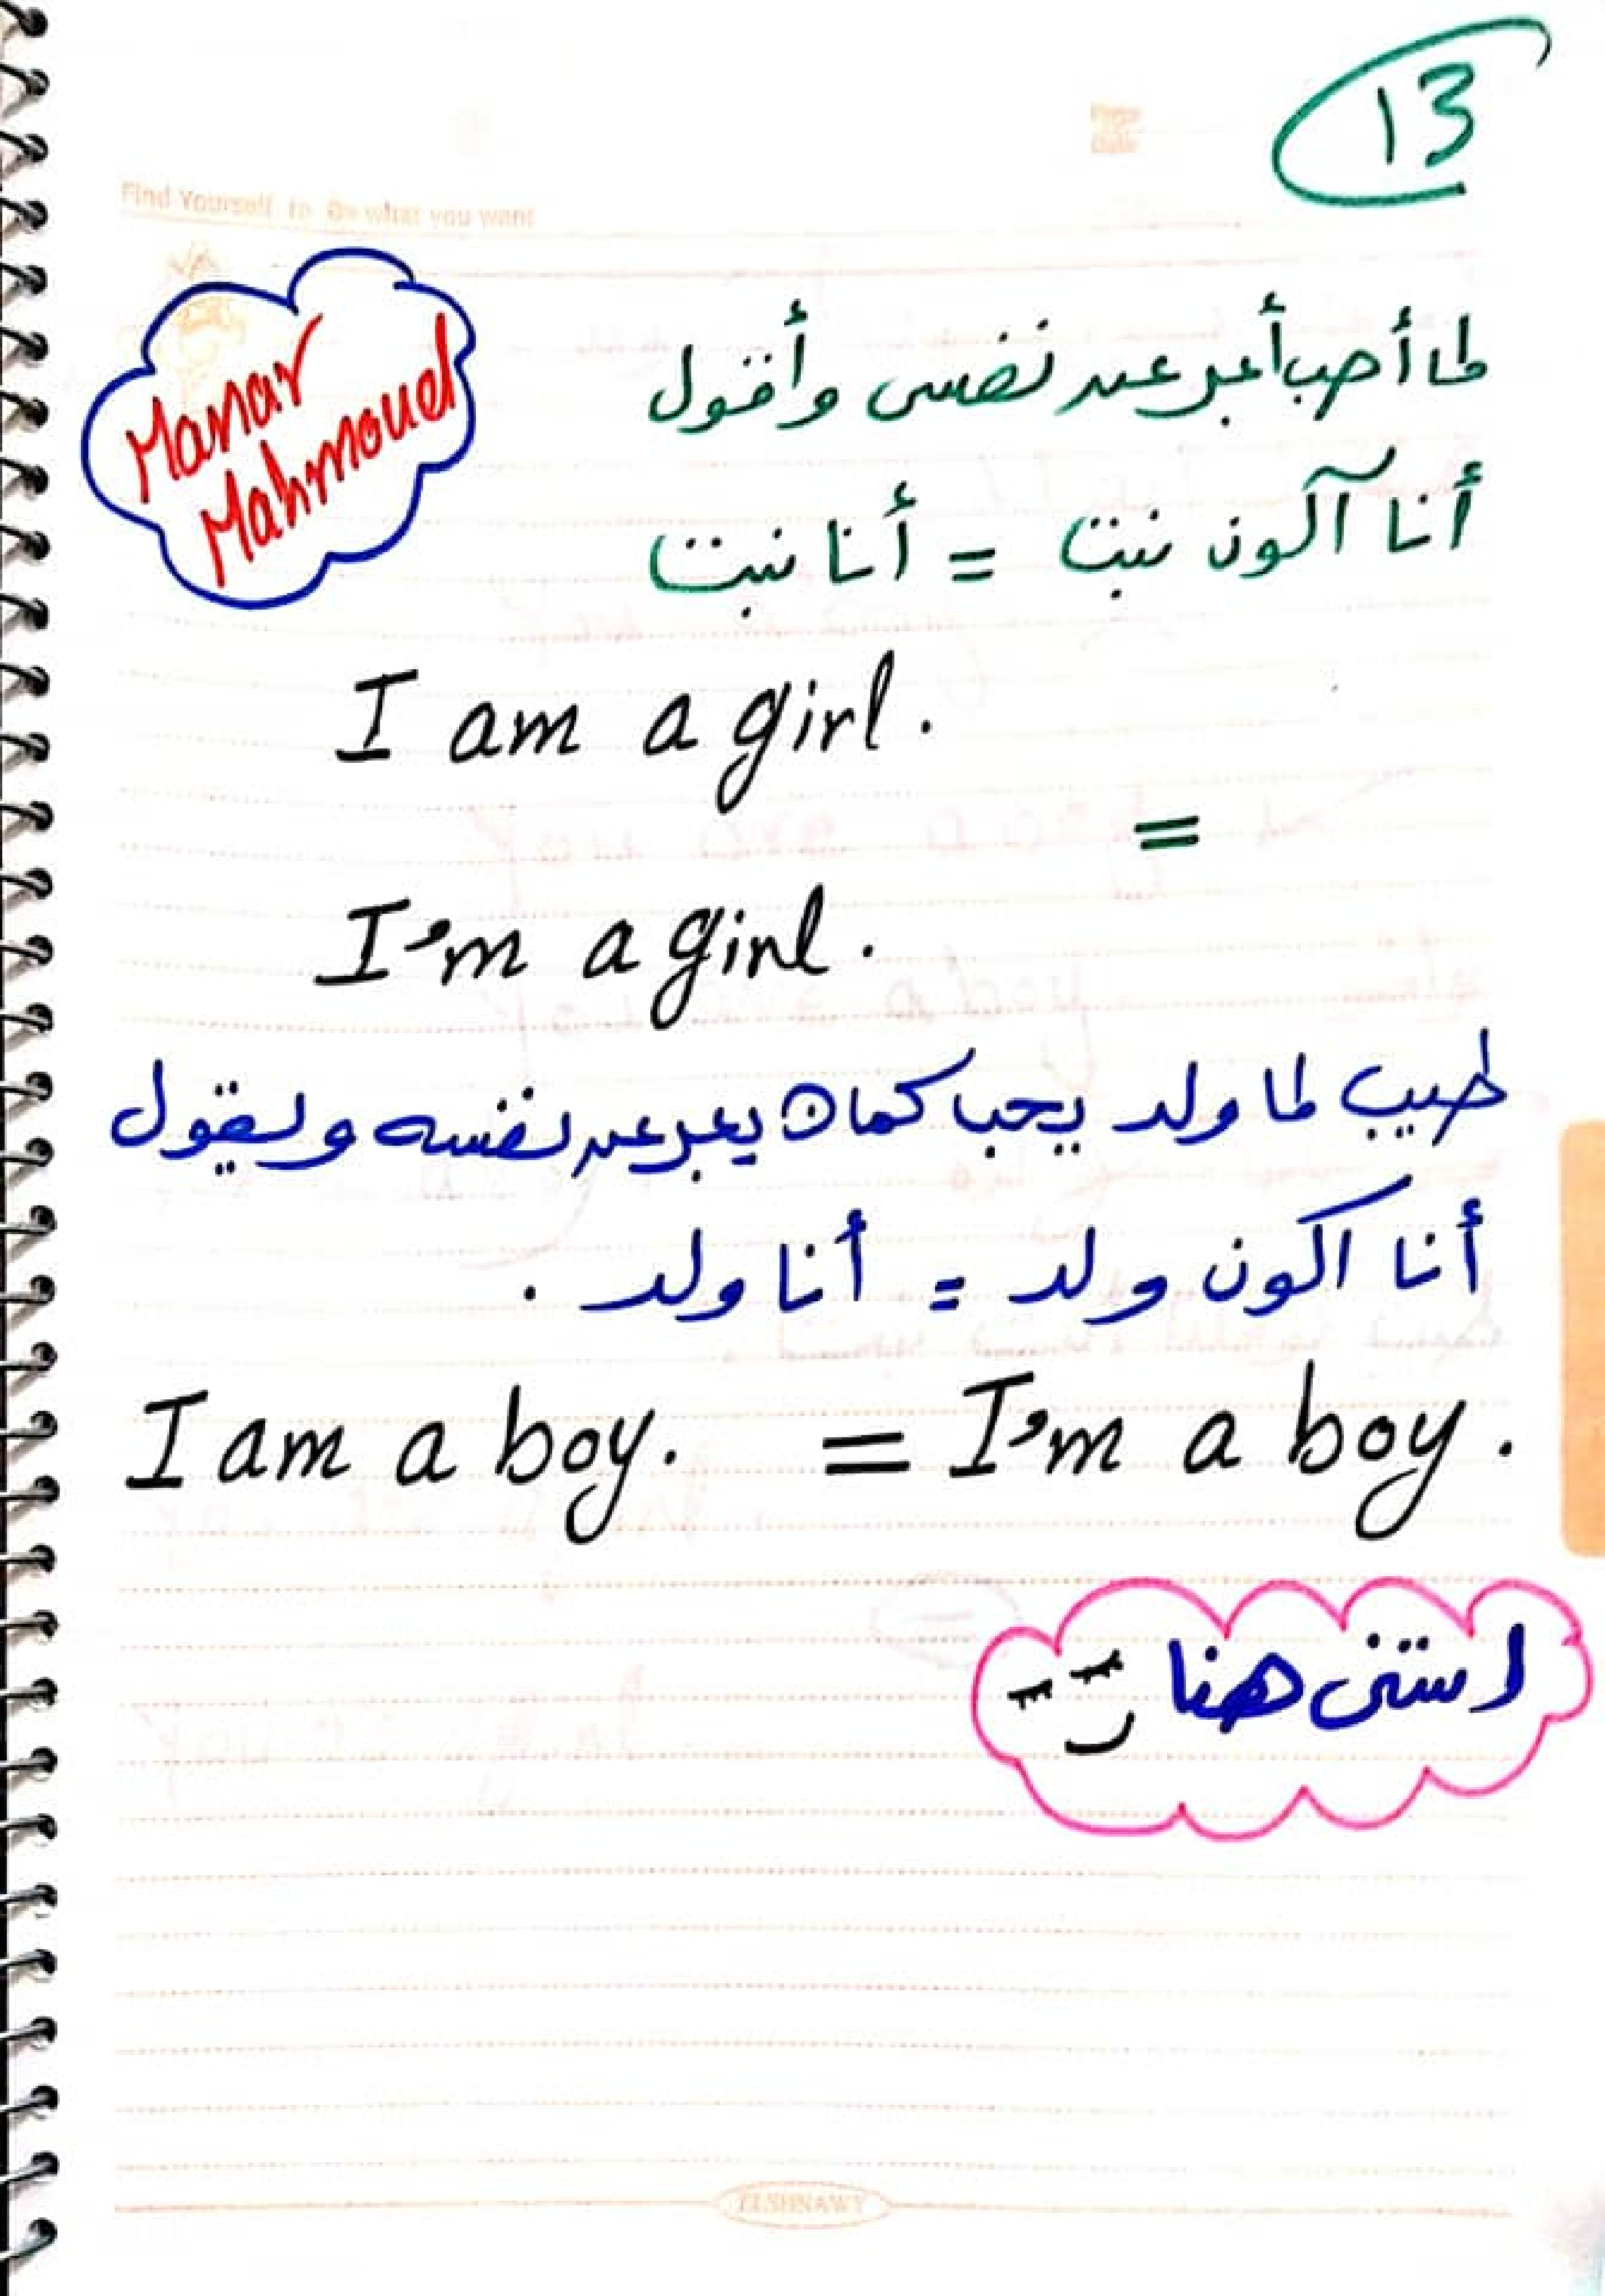 13
Page
Date
Find Yourself to Do what you want
Manar
Mahmoud
لما أحب أعبر عن نفسى وأقول
أنا أكون بنت = أنا بنت
I am a girl.
=
I'm a girl.
طيب لما ولد يحب كمان يعبر عن نفسه ويقول
أنا اكون ولد = أنا ولد .
I am a boy. = I'm a boy.
استنى هنا
ELSHNAWY